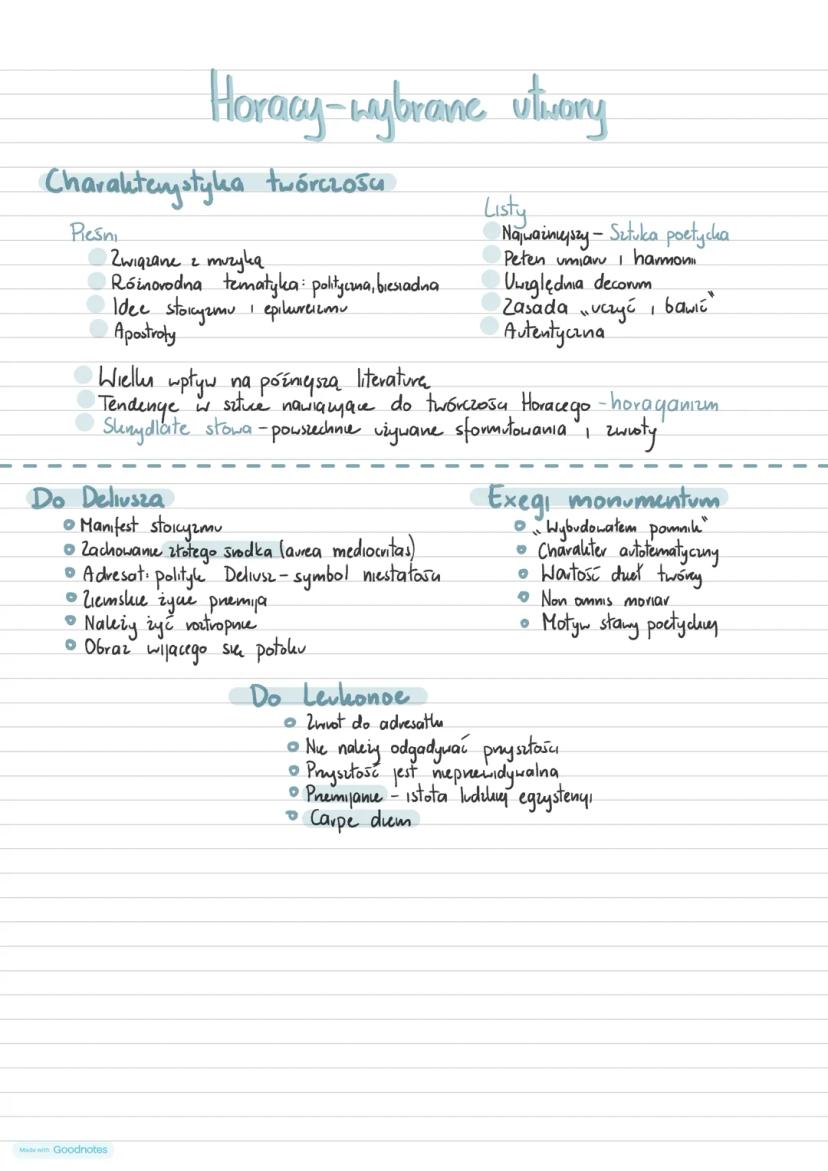 Horacy-wybrane utwory
Charakterystyka twórczości
Pieśni
Związane z muzyką
Różnorodna tematyka: polityczna, biesiadna
Idee stoicyzmu i epikureizmu
Apostrofy
Listy
Najważniejszy - Sztuka poetycka
Pełen umiaru i harmonii
Uwzględnia decorum
Zasada „uczyć i bawić"
Autentyczna
Wielki wpływ na późniejszą literaturę
Tendencje w sztuce nawiązujące do twórczości Horacego - horacjanizm
Skrzydlate słowa - powszechnie używane sformułowania i zwroty
Do Deliusza
Manifest stoicyzmu
Zachowanie złotego środka (aurea mediocritas)
Adresat: polityk Deliusz - symbol niestałości
Ziemskie życie przemija
Należy żyć roztropnie
Obraz wijącego się potoku
Exegi monumentum
„Wybudowałem pomnik"
Charakter autotematyczny
Wartość dzieł twórcy
Non omnis moriar
Motyw sławy poetyckiej
Do Leukonoe
Zwrot do adresatki
Nie należy odgadywać przyszłości
Przyszłość jest nieprzewidywalna
Przemijanie - istota ludzkiej egzystencji
Carpe diem
Made with Goodnotes